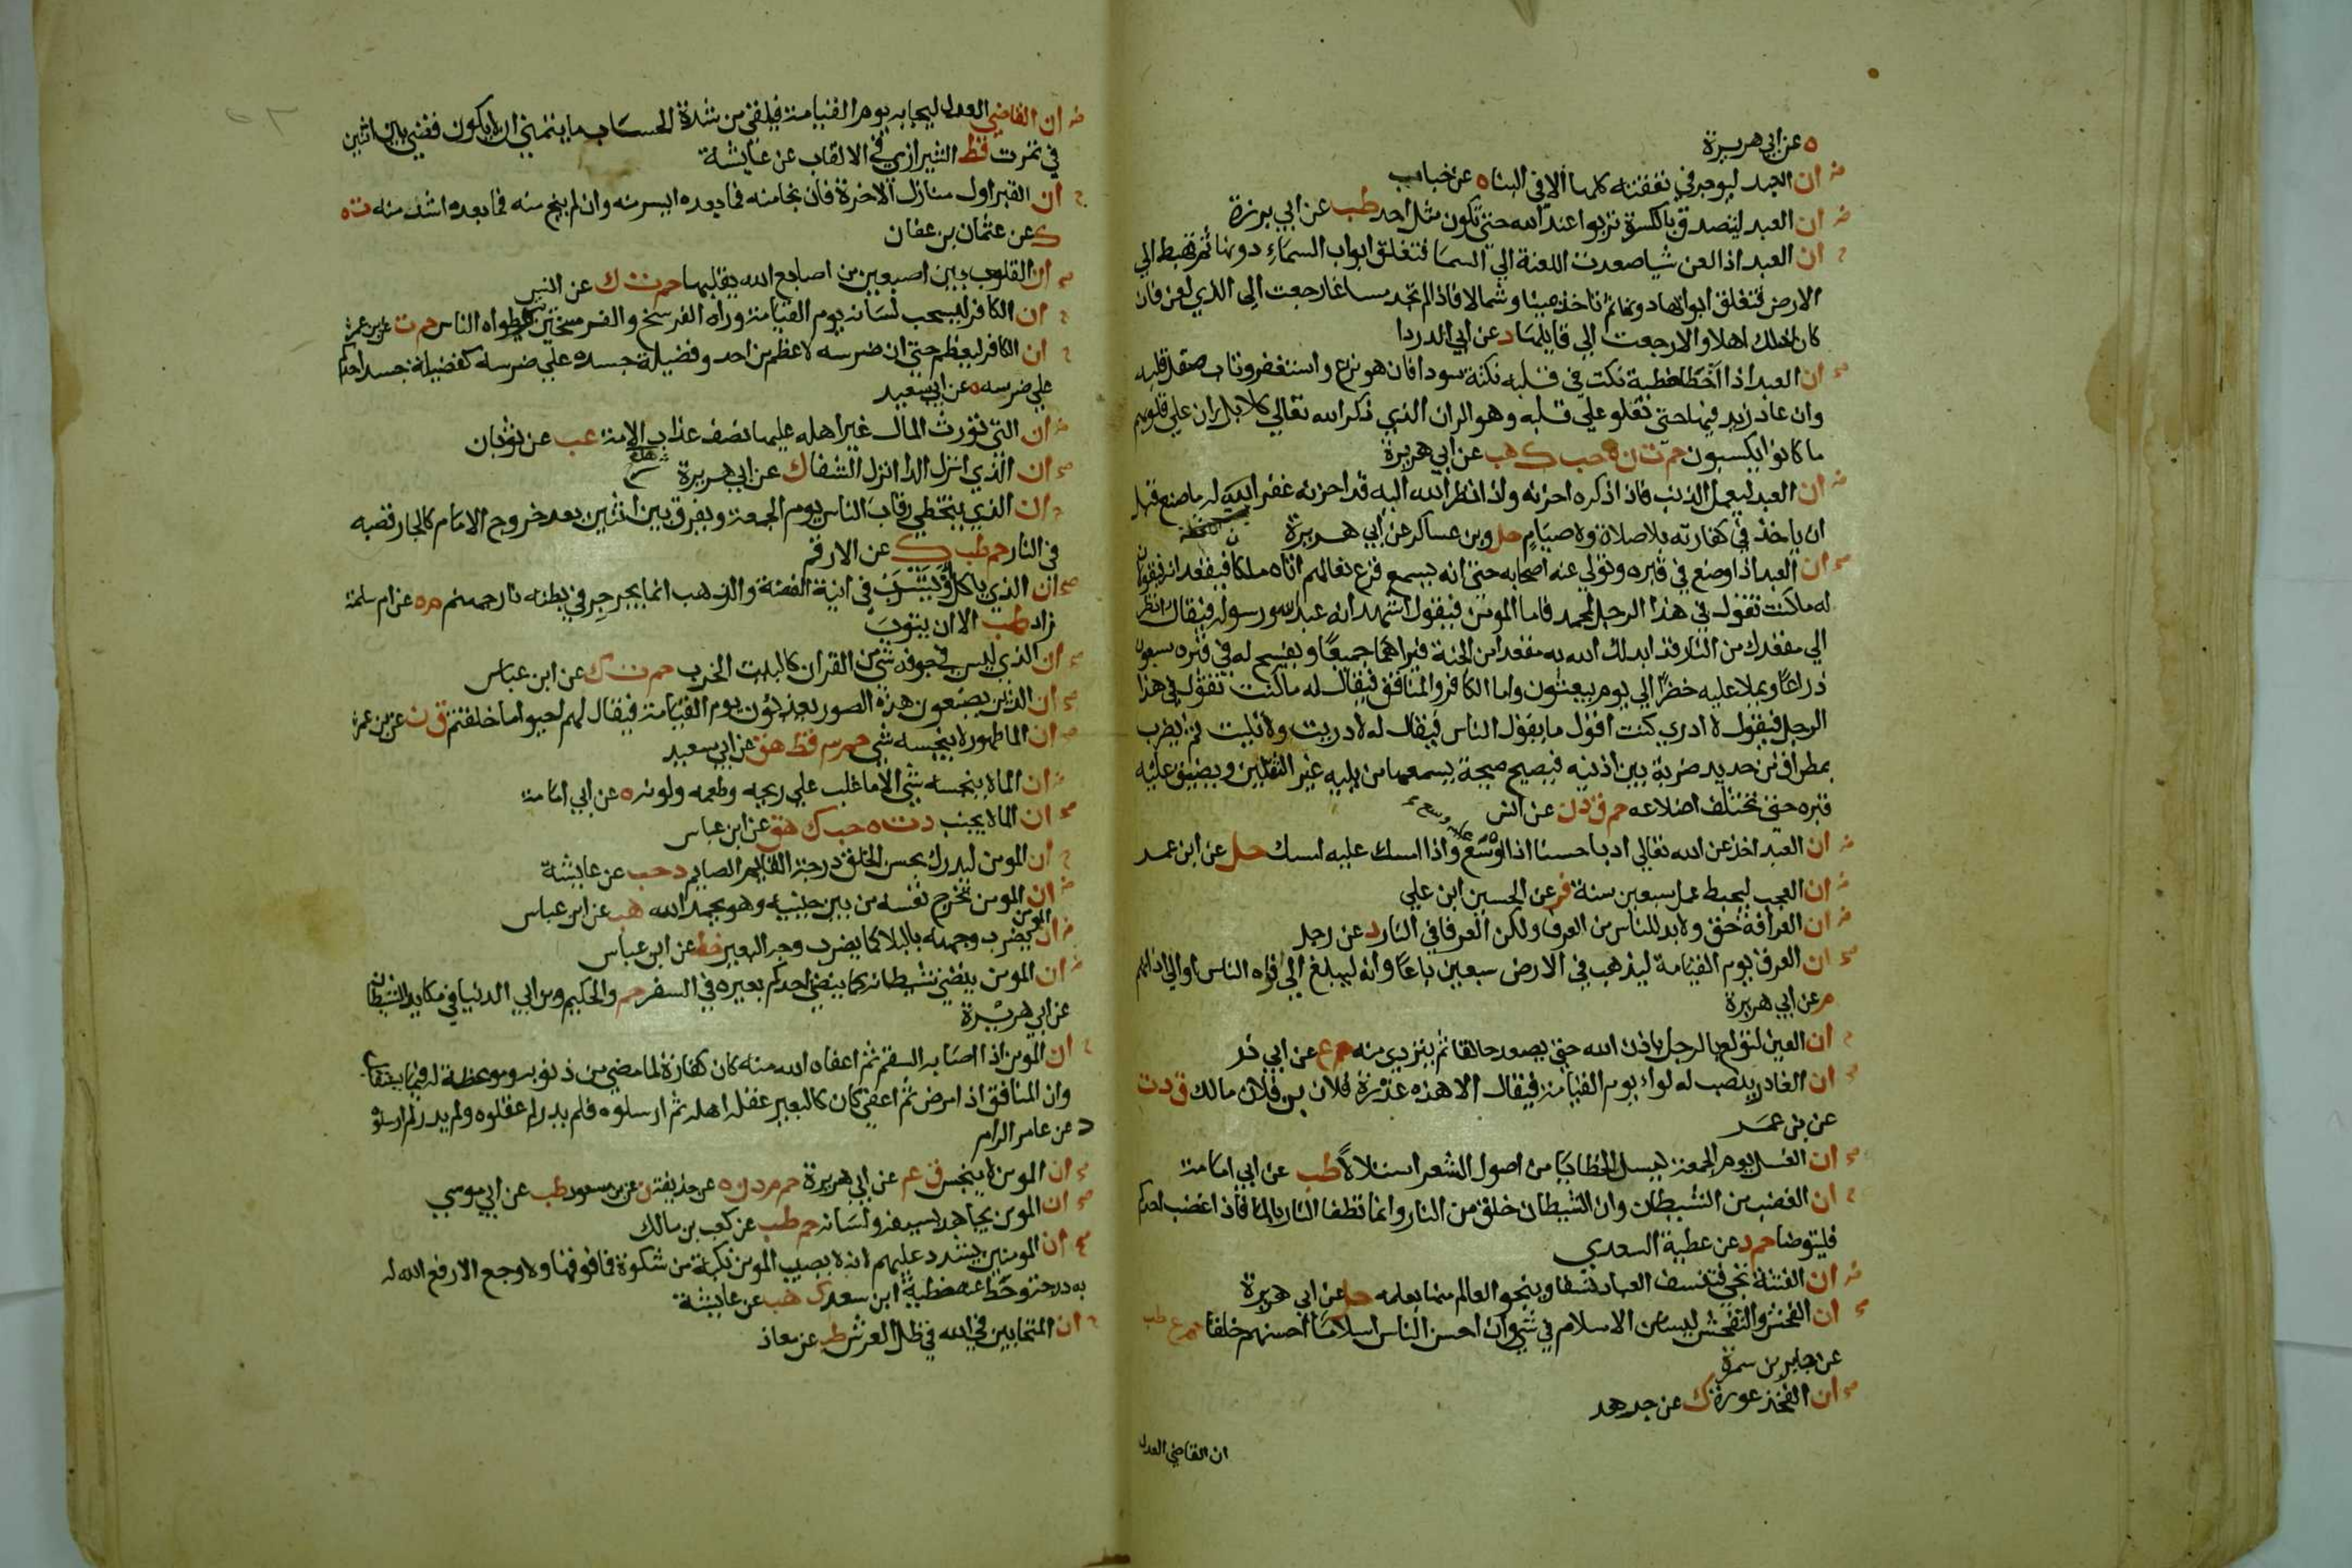 ه عن ابي هريرة
ان العبد ليوجر في نفقته كلها الا في البناه عن خباب
ان العبد ليتصدق بالكسرة تربوا عند الله حتى تكون مثل احد طب عن ابي برزة
ان العبد اذا لعن شيا صعدت اللعنة الي السما فتغلق ابواب السماء دونها ثم تهبط الي
الارض فتغلق ابوابها دونها ثم تاخذ يمينا وشمالا فاذا لم تجد مساغا رجعت الي الذي لعن فان
كان لذلك اهلا والا رجعت الي قايلها د عن ابي الدردا
ان العبد اذا اخطا خطية نكت في قلبه نكتة سودا فان هو نزع واستغفر وتاب صقل قلبه
وان عاد زيد فيها حتى تعلو علي قلبه وهو الران الذي ذكر الله تعالي كلا بل ران علي قلوبهم
ما كانوا يكسبون حم ت ن ه حب ك هب عن ابي هريرة
ان العبد ليعمل الذنب فاذا ذكره احزنه واذا نظر الله اليه قد احزنه غفر الله له ما صنع قبل
ان ياخذ في كفارته بلا صلاة ولا صيام حل وبن عساكر عن ابي هريرة
ان العبد اذا وضع في قبره وتولي عنه اصحابه حتى انه يسمع قرع نعالهم اتاه ملكا فيقعدانه فيقولان
له ما كنت تقول في هذا الرجل لمحمد فاما المومن فيقول اشهد انه عبد الله ورسوله فيقال انظر
الي مقعدك من النار قد ابدلك الله به مقعدا من الجنة فيراهما جميعا ويفسح له في قبره سبعون
ذراعا ويملا عليه خضرا الي يوم يبعثون واما الكافر والمنافق فيقال له ما كنت تقول في هذا
الرجل فيقول لا ادري كنت اقول ما يقول الناس فيقال له لا دريت ولا تليت ثم يضرب
بمطراق من حديد ضربة بين اذنيه فيصيح صيحة يسمعها من يليه غير الثقلين ويضيق عليه
قبره حتى تختلف اضلاعه حم ق د ن عن انس
ان العبد اخذ عن الله تعالي ادبا حسنا اذا وسع عليه وسع واذا امسك عليه امسك حل عن ابن عمر
ان العجب ليحبط عمل سبعين سنة فر عن الحسين ابن علي
ان العرافة حق ولا بد للناس من العرفا ولكن العرفا في النار د عن رجل
ان العرق يوم القيامة ليذهب في الارض سبعين باعا وانه ليبلغ الي افواه الناس او الي اذانهم
م عن ابي هريرة
ان العين لتولع بالرجل باذن الله حتى يصعد حالقا ثم يتردي منه حم ع عن ابي ذر
ان الغادر ينصب له لواء يوم القيامة فيقال الا هذه غدرة فلان بن فلان مالك ق د ت
عن بن عمر
ان الغسل يوم الجمعة ليسل الخطايا من اصول الشعر استلالا طب عن ابي امامة
ان الغضب من الشيطان وان الشيطان خلق من النار وانما تطفا النار بالما فاذا غضب احدكم
فليتوضا حم د عن عطية السعدي
ان الفتنة تجي فتنسف العباد نسفا وينجو العالم منها بعلمه حل عن ابي هريرة
ان الفحش والتفحش ليسا من الاسلام في شي وان احسن الناس اسلاما احسنهم خلقا حم ع طب
عن جابر بن سمرة
ان الفخذ عورة ك عن جرهد
ان القاضي العدل
ان القاضي العدل ليجا به يوم القيامة فيلقي من شدة الحساب ما يتمني ان لا يكون قضي بين اثنين
في تمرت قط الشيرازي في الالقاب عن عايشة
ان القبر اول منازل الاخرة فان نجا منه فما بعده ايسر منه وان لم ينج منه فما بعده اشد منه ت ه
ك عن عثمان بن عفان
ان القلوب بين اصبعين من اصابع الله يقلبها حم ت ك عن انس
ان الكافر ليسحب لسانه يوم القيامة وراه الفرسخ والفرسخين يتوطواه الناس حم ت عن بن عمر
ان الكافر ليعظم حتى ان ضرسه لاعظم من احد وفضيلة جسده علي ضرسه كفضيلة جسد احدكم
علي ضرسه ه عن ابي سعيد
ان التي تورث المال غير اهله عليها نصف عذاب الامة عب عن ثوبان
ان الذي انزل الدا انزل الشفا ك عن ابي هريرة
ان الذي يتخطي رقاب الناس يوم الجمعة ويفرق بين اثنين بعد خروج الامام كالجار قصبه
في النار حم طب ك عن الارقم
ان الذي ياكل او يشرب في انية الفضة والذهب انما يجرجر في بطنه نار جهنم م ه عن ام سلمة
زاد طب الا ان يتوب
ان الذي ليس في جوفه شي من القران كالبيت الخرب حم ت ك عن ابن عباس
ان الذين يصنعون هذه الصور يعذبون يوم القيامة فيقال لهم احيوا ما خلقتم ق ن عن بن عمر
ان الما طهور لا ينجسه شي حم قط هق عن ابي سعيد
ان الما لا ينجسه شي الا ما غلب علي ريحه وطعمه ولونه ه عن ابي امامة
ان الما لا يجنب د ت ه حب ك هق عن ابن عباس
ان المومن ليدرك بحسن الخلق درجة القايم الصايم د حب عن عايشة
ان المومن تخرج نفسه من بين جنبيه وهو يحمد الله هب عن ابن عباس
ان المومن يضرب وجهه بالبلا كما يضرب وجه البعير خط عن ابن عباس
ان المومن ينضي شيطانه كما ينضي احدكم بعيره في السفر حم والحكيم وبن ابي الدنيا في مكايد الشيطان
عن ابي هريرة
ان المومن اذا اصابه السقم ثم اعفاه الله منه كان كفارة لما مضي من ذنوبه وموعظة له فيما يستقبل
وان المنافق اذا مرض ثم اعفي كان كالبعير عقله اهله ثم ارسلوه فلم يدر لم عقلوه ولم يدر لم ارسلوه
د عن عامر الرام
ان المومن لا ينجس ق عم عن ابي هريرة حم م د ن ه عن حذيفة ن عن بن مسعود طب عن ابي موسي
ان المومن يجاهد بسيفه ولسانه حم طب عن كعب بن مالك
ان المومنين يشدد عليهم لانه لا يصيب المومن نكبة من شكوة فما فوقها ولا وجع الا رفع الله له
به درجة وحط عنه خطية ابن سعد ك هب عن عايشة
ان المتحابين في الله في ظل العرش طب عن معاذ